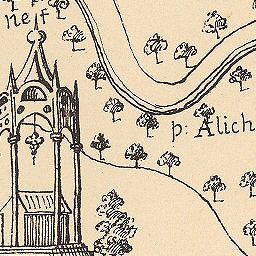 nef
p: Alich